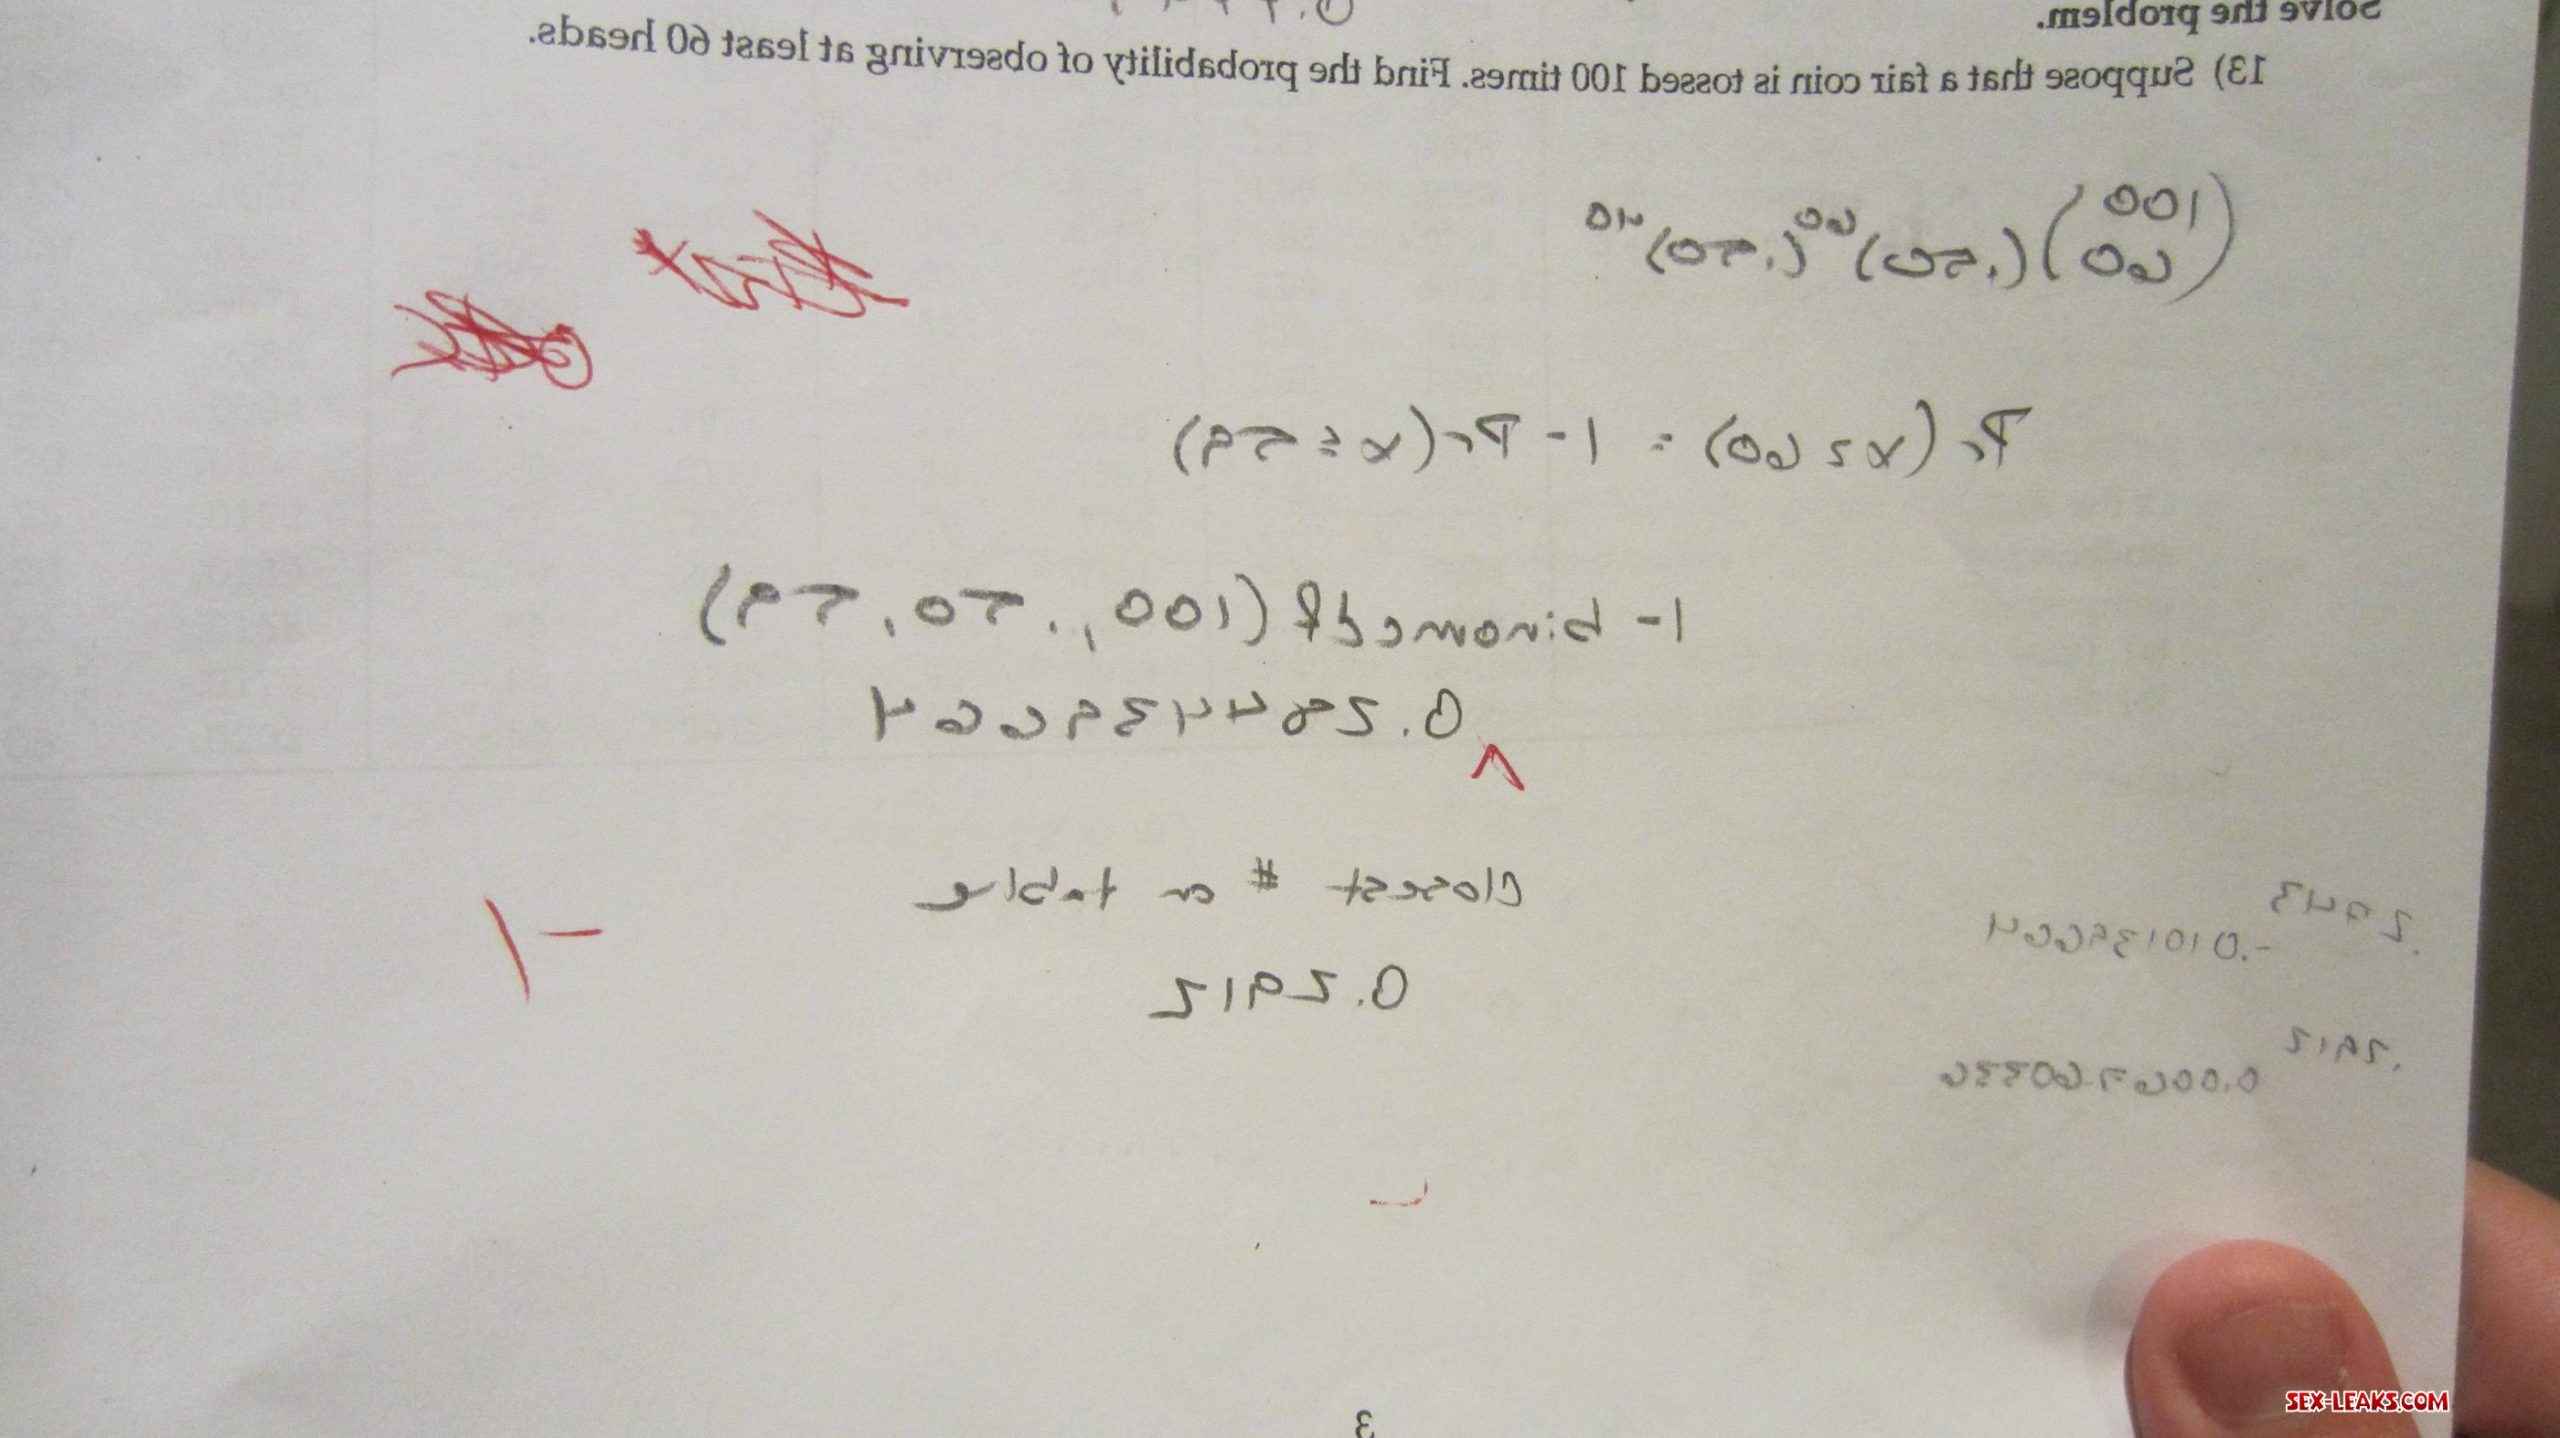 Solve the problem.
13) Suppose that a fair coin is tossed 100 times. Find the probability of observing at least 60 heads.
(100 60)(.50)^60(.50)^40
Pr(x≥60) = 1 - Pr(x≤59)
1- binomcdf(100,.50,59)
0.284439664
Closest # on table
0.2912
.2943
-.010139664
.2912
-1
3
SEX-LEAKS.COM